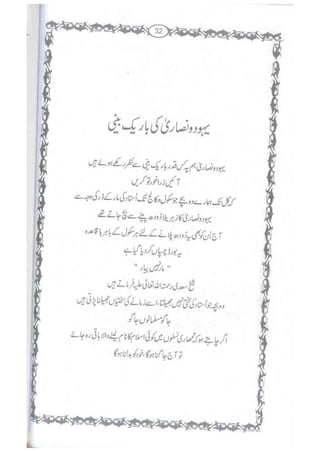 32
یہود و نصاریٰ کی باریک بینی
یہود و نصاریٰ ہم پہ کس قدر باریک بینی سے نظر رکھے ہوئے ہیں
آئیں ذرا غور تو کریں
کہ کل تک ہمارے وہ بچے جو سکول و کالج تک اُستاد کی مار کے ڈر کی وجہ سے
یہود و نصاریٰ کا زہریلا دودھ پینے سے بچ جاتے تھے
آج اُن کو بھی یہ دودھ پلانے کے لئے ہر سکول کے باہر باقاعدہ
یہ بورڈ چسپاں کر دیا گیا ہے
"مار نہیں پیار"
شیخ سعدی رحمتہ اللہ تعالیٰ علیہ فرماتے ہیں
وہ بچہ جو اُستاد کی سختی نہیں جھیلتا، اسے زمانے کی سختیاں جھیلنا پڑتی ہیں
جاگو مسلمانوں جاگو
اگر چاہتے ہو کہ تمھاری نسلوں میں کوئی اسلام کا نام لینے والا باقی رہ جائے
تو آج جاگنا ہوگا، خود کو بدلنا ہوگا